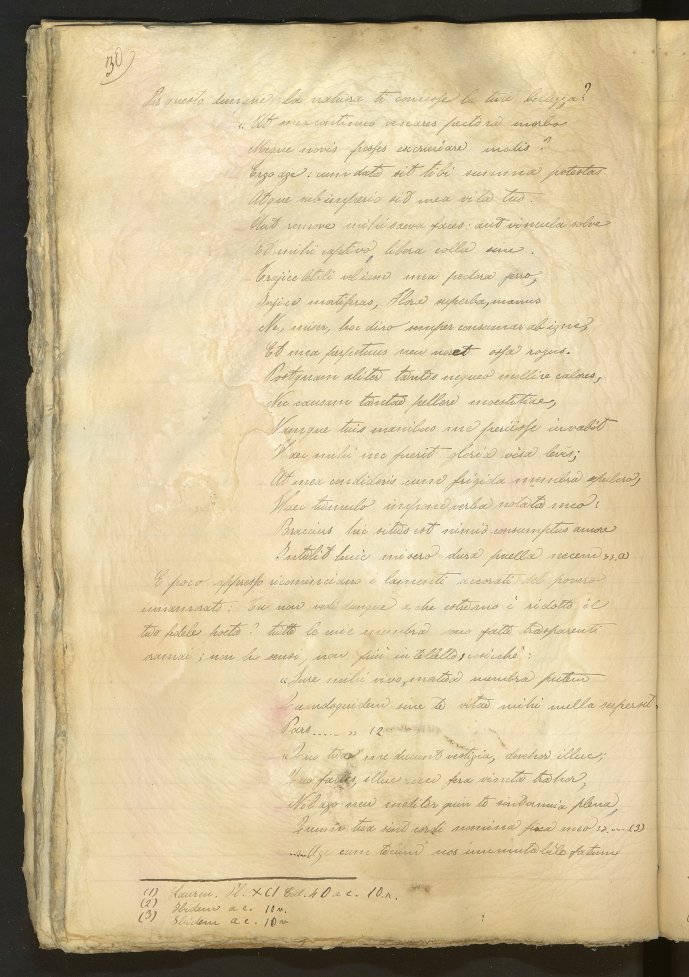 30)
Per questo dunque la natura ti concesse la tua bellezza?
"Ut mea continuo vescares pectora morbo
Meque novis posses excruciare malis?
Ergo age: cum data sit tibi summa potestas
Atque sub imperio sit mea vita tuo.
Aut remove mihi saeva faces: aut vincula solve
Et mihi captivo, libera colla sine.
Trajice letali vel jam mea pectora ferro,
Injice mortiferas, Flora superba, manus
Ne, miser, hoc diro semper consumar ab igne,
Et mea perpetuus neu voret ossa rogus.
Postquam aliter tantos nequeo mollire calores,
Nec causam tantae pellere moestitiae,
Namque tuis manibus me periisse iuvabit
Haec mihi nec fuerit gloria visa levis;
At mea condideris cum frigida membra sepulcro,
Haec tumulo impone verba notata meo:
Braccius hic situs est nimio consumptus amore
Intulit huic misero dura puella necem (1)
E poco appresso ricominciano i lamenti accorati del povero
innamorato: Tu non vedi dunque a che estremo è ridotto il
tuo fedele poeta? tutte le mie membra son fatte trasparenti
oramai; non ho sensi, non più intelletto, sicchè:
"Jure mihi vivo, materia membra putem
Quandoquidem sine te vitae mihi nulla supersit.
Pars..... " 12
"Quo tua me ducunt vestigia, devehor illuc;
Quo facies, illuc me fera vincta trahor,
Nel ego neu mehtler quin te sint omnia plena,
Quum tua sint cordi nomina fixa meo (2)
....Age cum tecum nos immutabile fatum
(1) Lauren. Pl. XCI Cod. 40 a c. 10 r.
(2) Ibidem a c. 11 r.
(3) Ibidem a c. 10 v